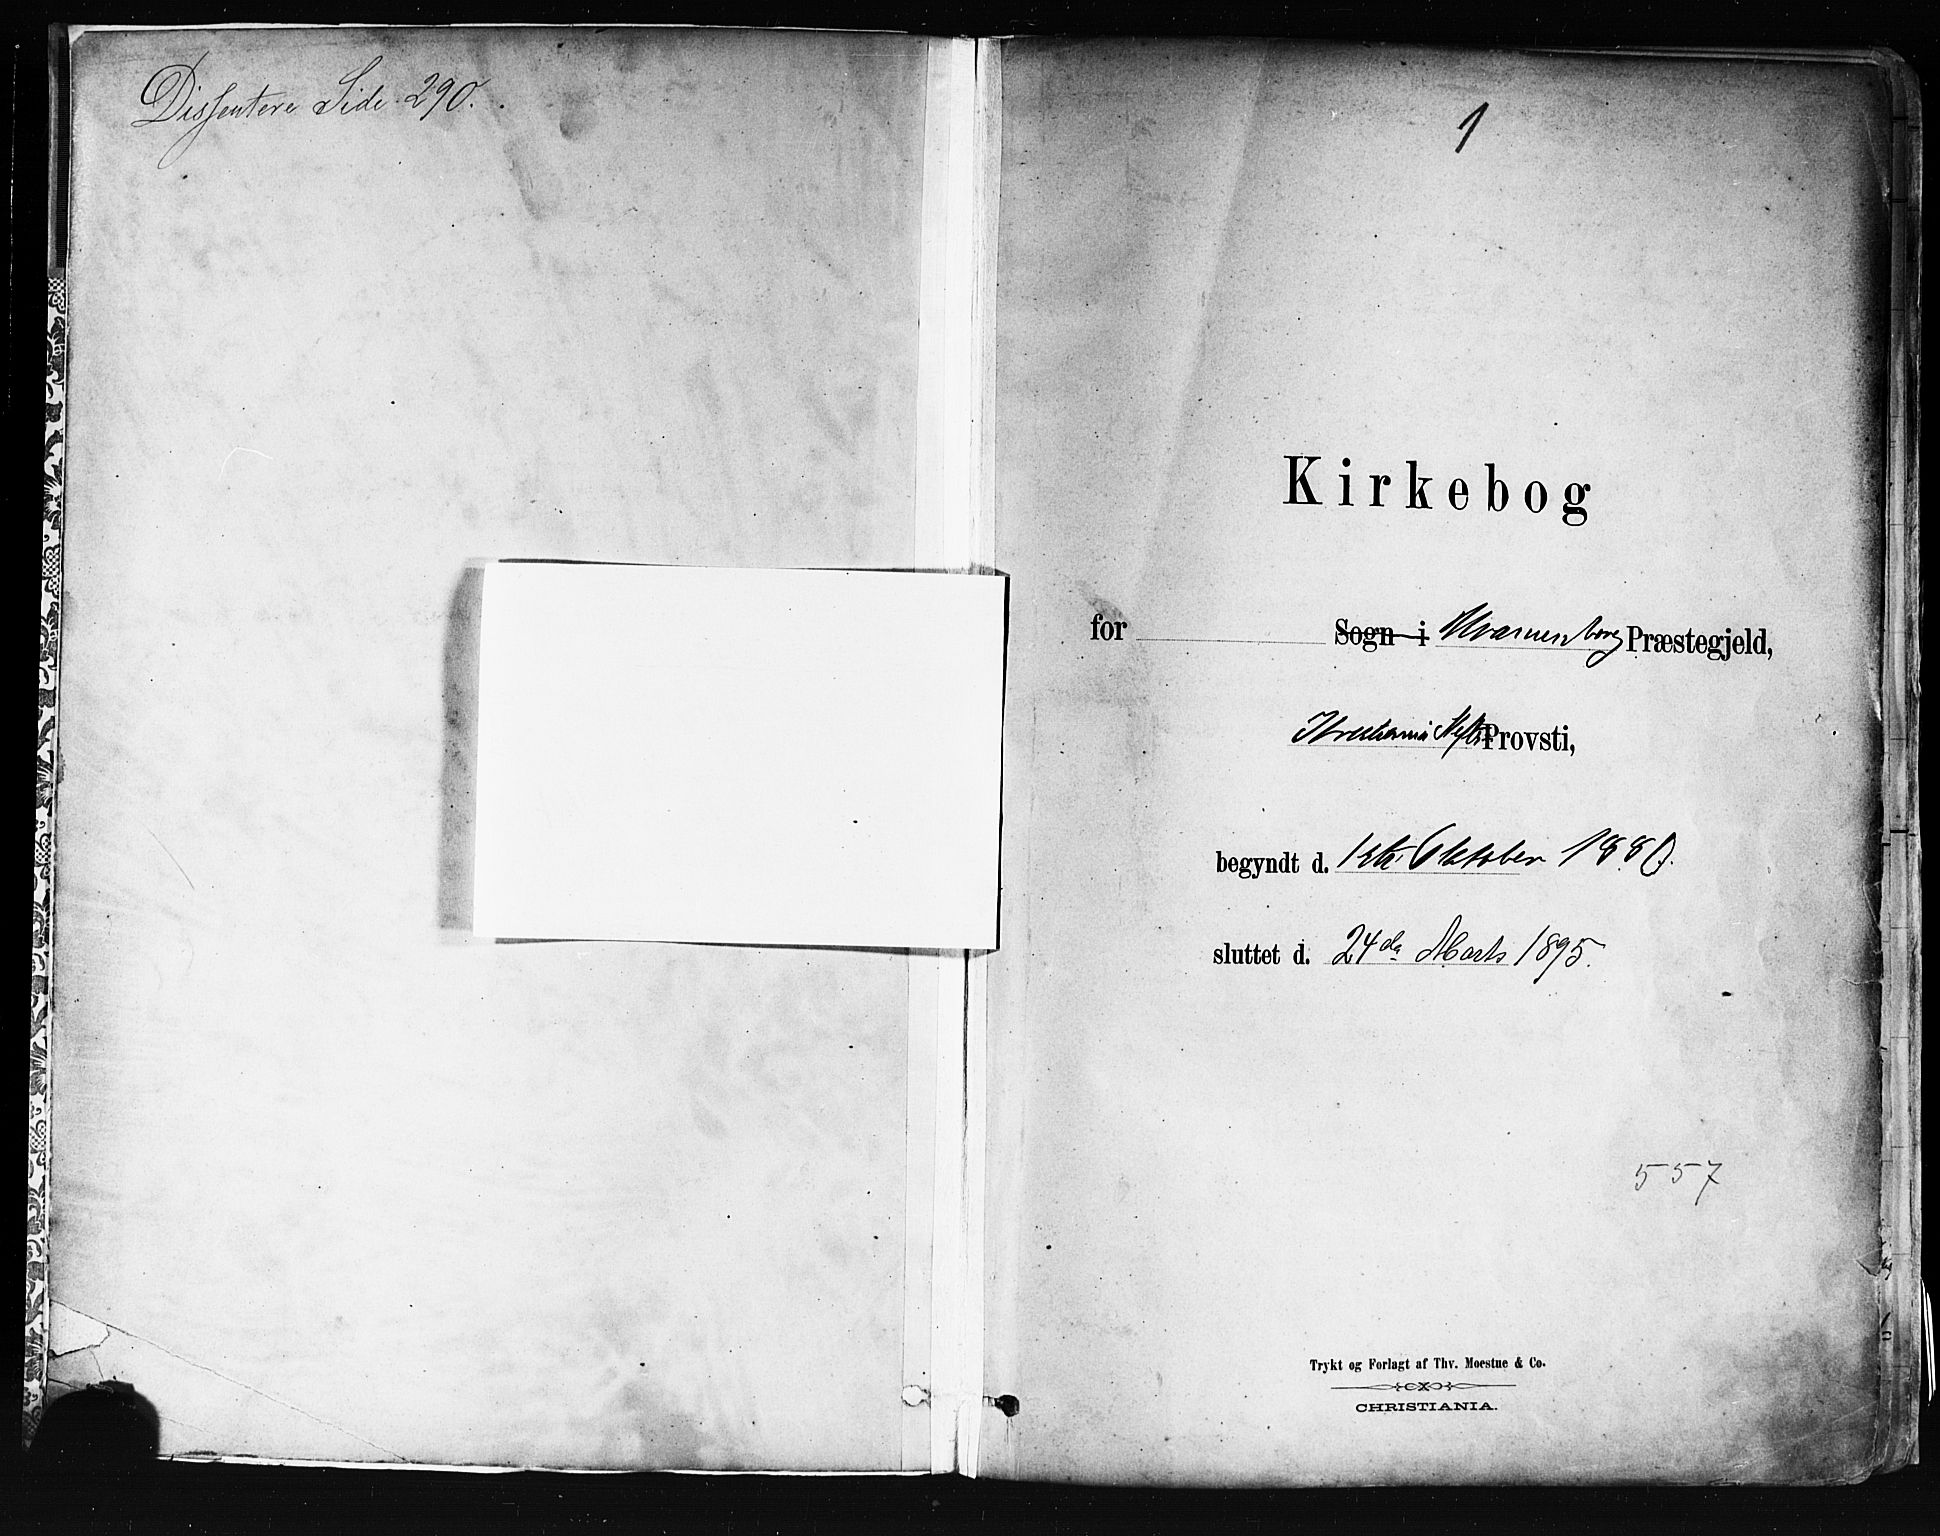 Dissentere Side 290.
1
Kirkebog
for Sogn i Uranienborg Præstegjeld,
Kristiania Stifts Provsti,
begyndt d. 1ste Oktober 1880.
sluttet d. 24de Marts 1895.
557
Trykt og Forlagt af Thv. Moestue & Co.
CHRISTIANIA.